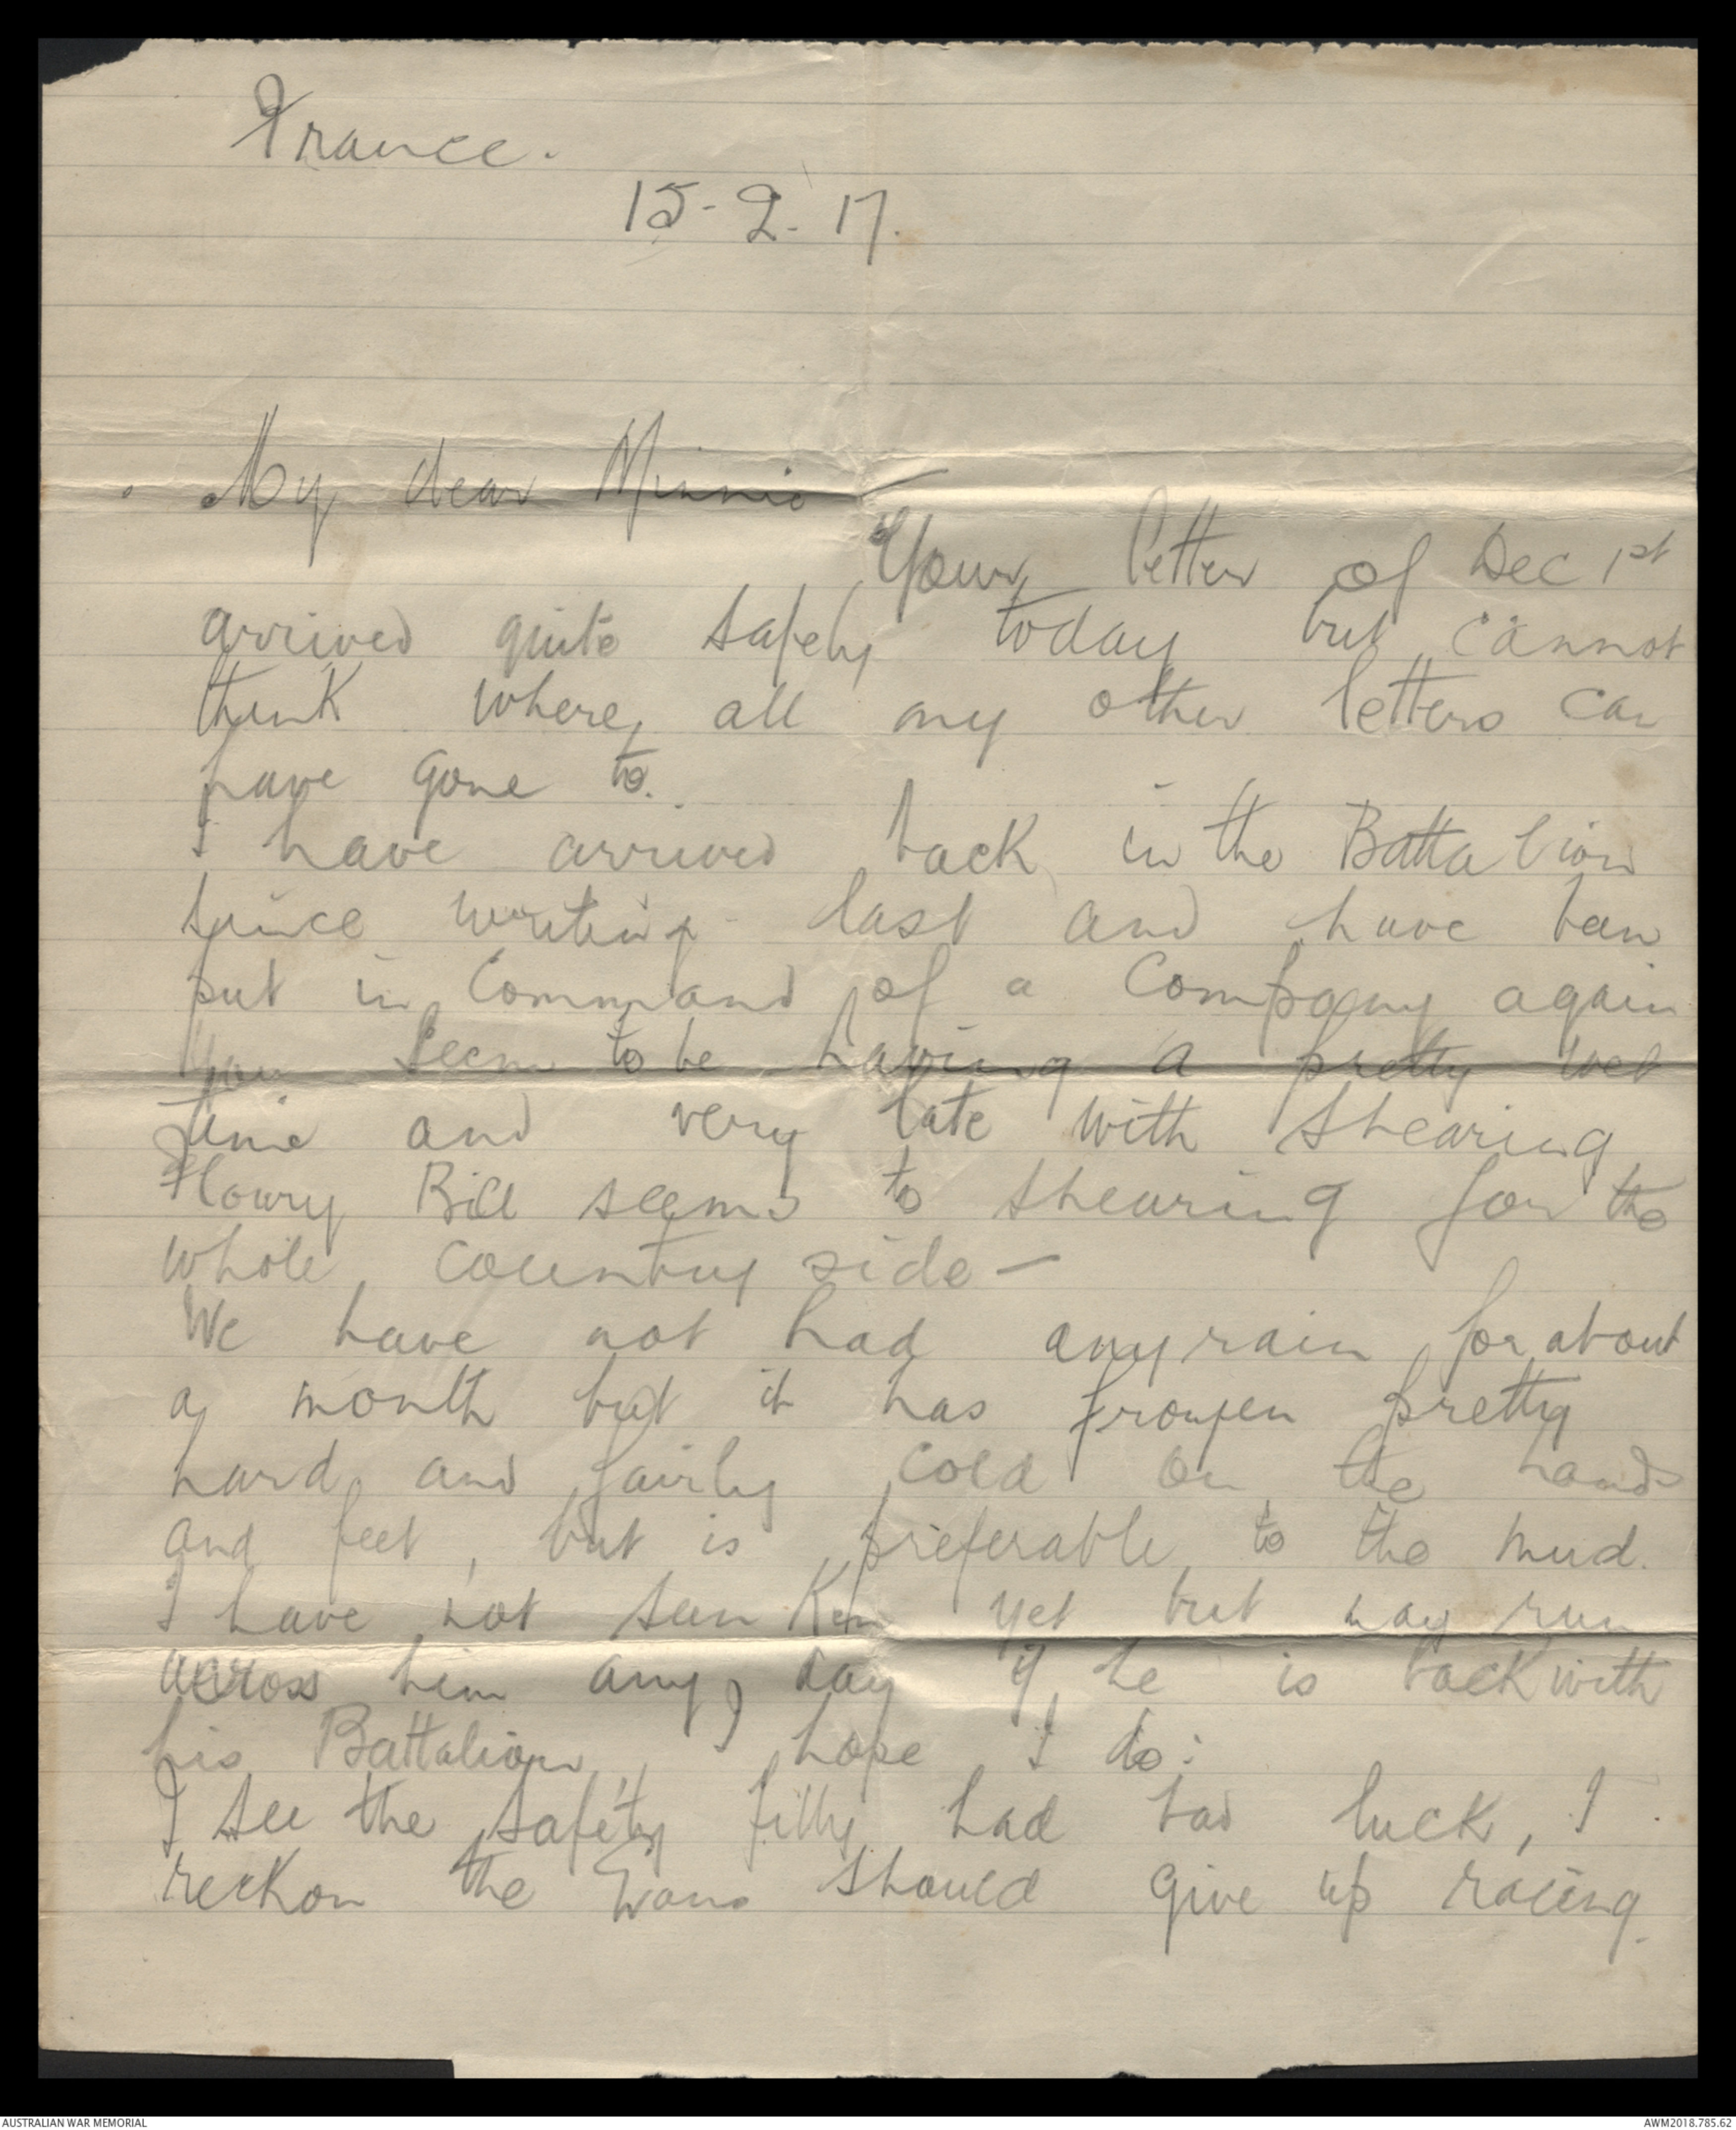 France.
15-2.17.
My dear Minnie
Your letter of Dec 1st
arrived quite safely today but cannot
think where all my other letters can
have gone to.
I have arrived back in the Battalion
since writing last and have been
put in Command of a Company again
You seem to be having a pretty wet
time and very late with shearing
Bill seems to shearing for the
whole country side —
We have not had any rain for about
a month but it has frozen pretty
hard and fairly cold on the hands
and feet, but is preferable to the mud.
I have not seen Ken yet but may run
across him any day if he is back with
his Battalion, hope I do:
I see the safety filly had bad luck, I
reckon the should give up racing.
AUSTRALIAN WAR MEMORIAL
AWM2018.785.62